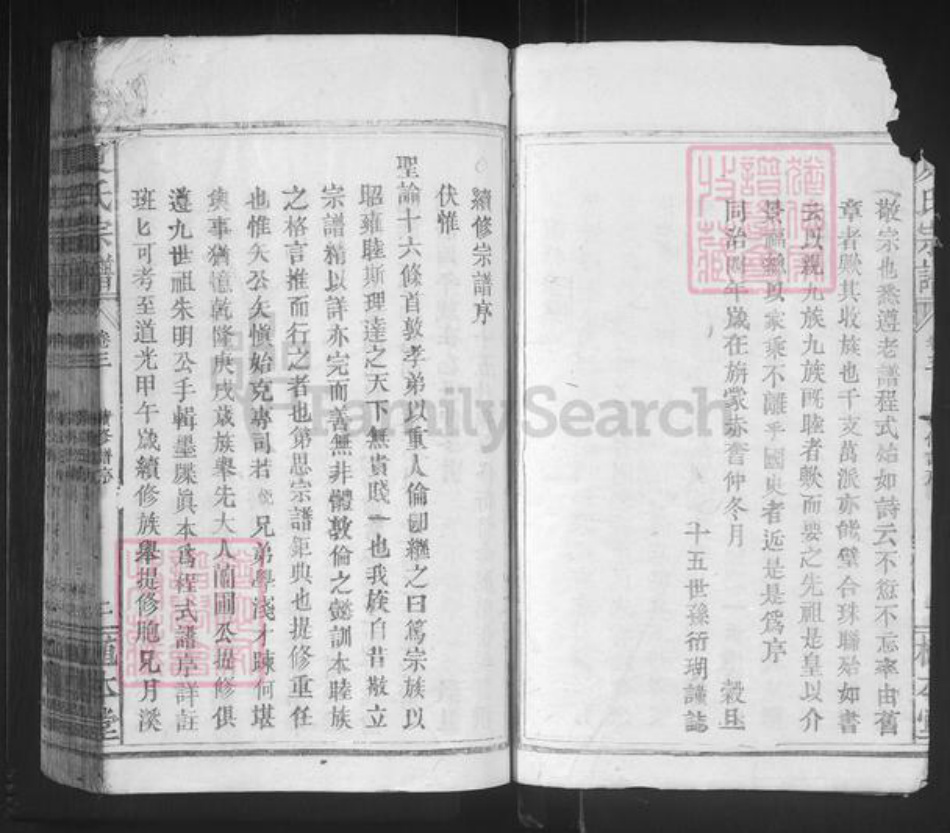 敬宗也悉遵老譜程式殆如詩云不愆不忘率由舊
章者歟其收族也千支萬派亦能璧合珠聯殆如書
云以親九族九族既睦者歟而要之先祖是皇以介
景福總以家乘不離乎國史者近是是爲序
同治四年歲在旃蒙赤奮仲冬月 穀旦
十五世孫衍瑚謹誌
續修宗譜序
伏惟
聖諭十六條首敦孝弟以重人倫卽繼之曰篤宗族以
昭雍睦斯理達之天下無貴賤一也我族自昔散立
宗譜精以詳亦完而善無非體敦倫之懿訓本睦族
之格言推而行之者也第思宗譜鉅典也提修重任
也惟矢公矢愼始克專司若 兄弟學淺才疎何堪
與事猶憶乾隆庚戌歲族舉先大人蘭圃公提修俱
遵九世祖朱明公手輯墨牒眞本爲程式譜序詳註
班匕可考至道光甲午歲續修族舉提修胞兄月溪
氏宗譜
卷三
續修譜序
二
本堂
FamilySearch